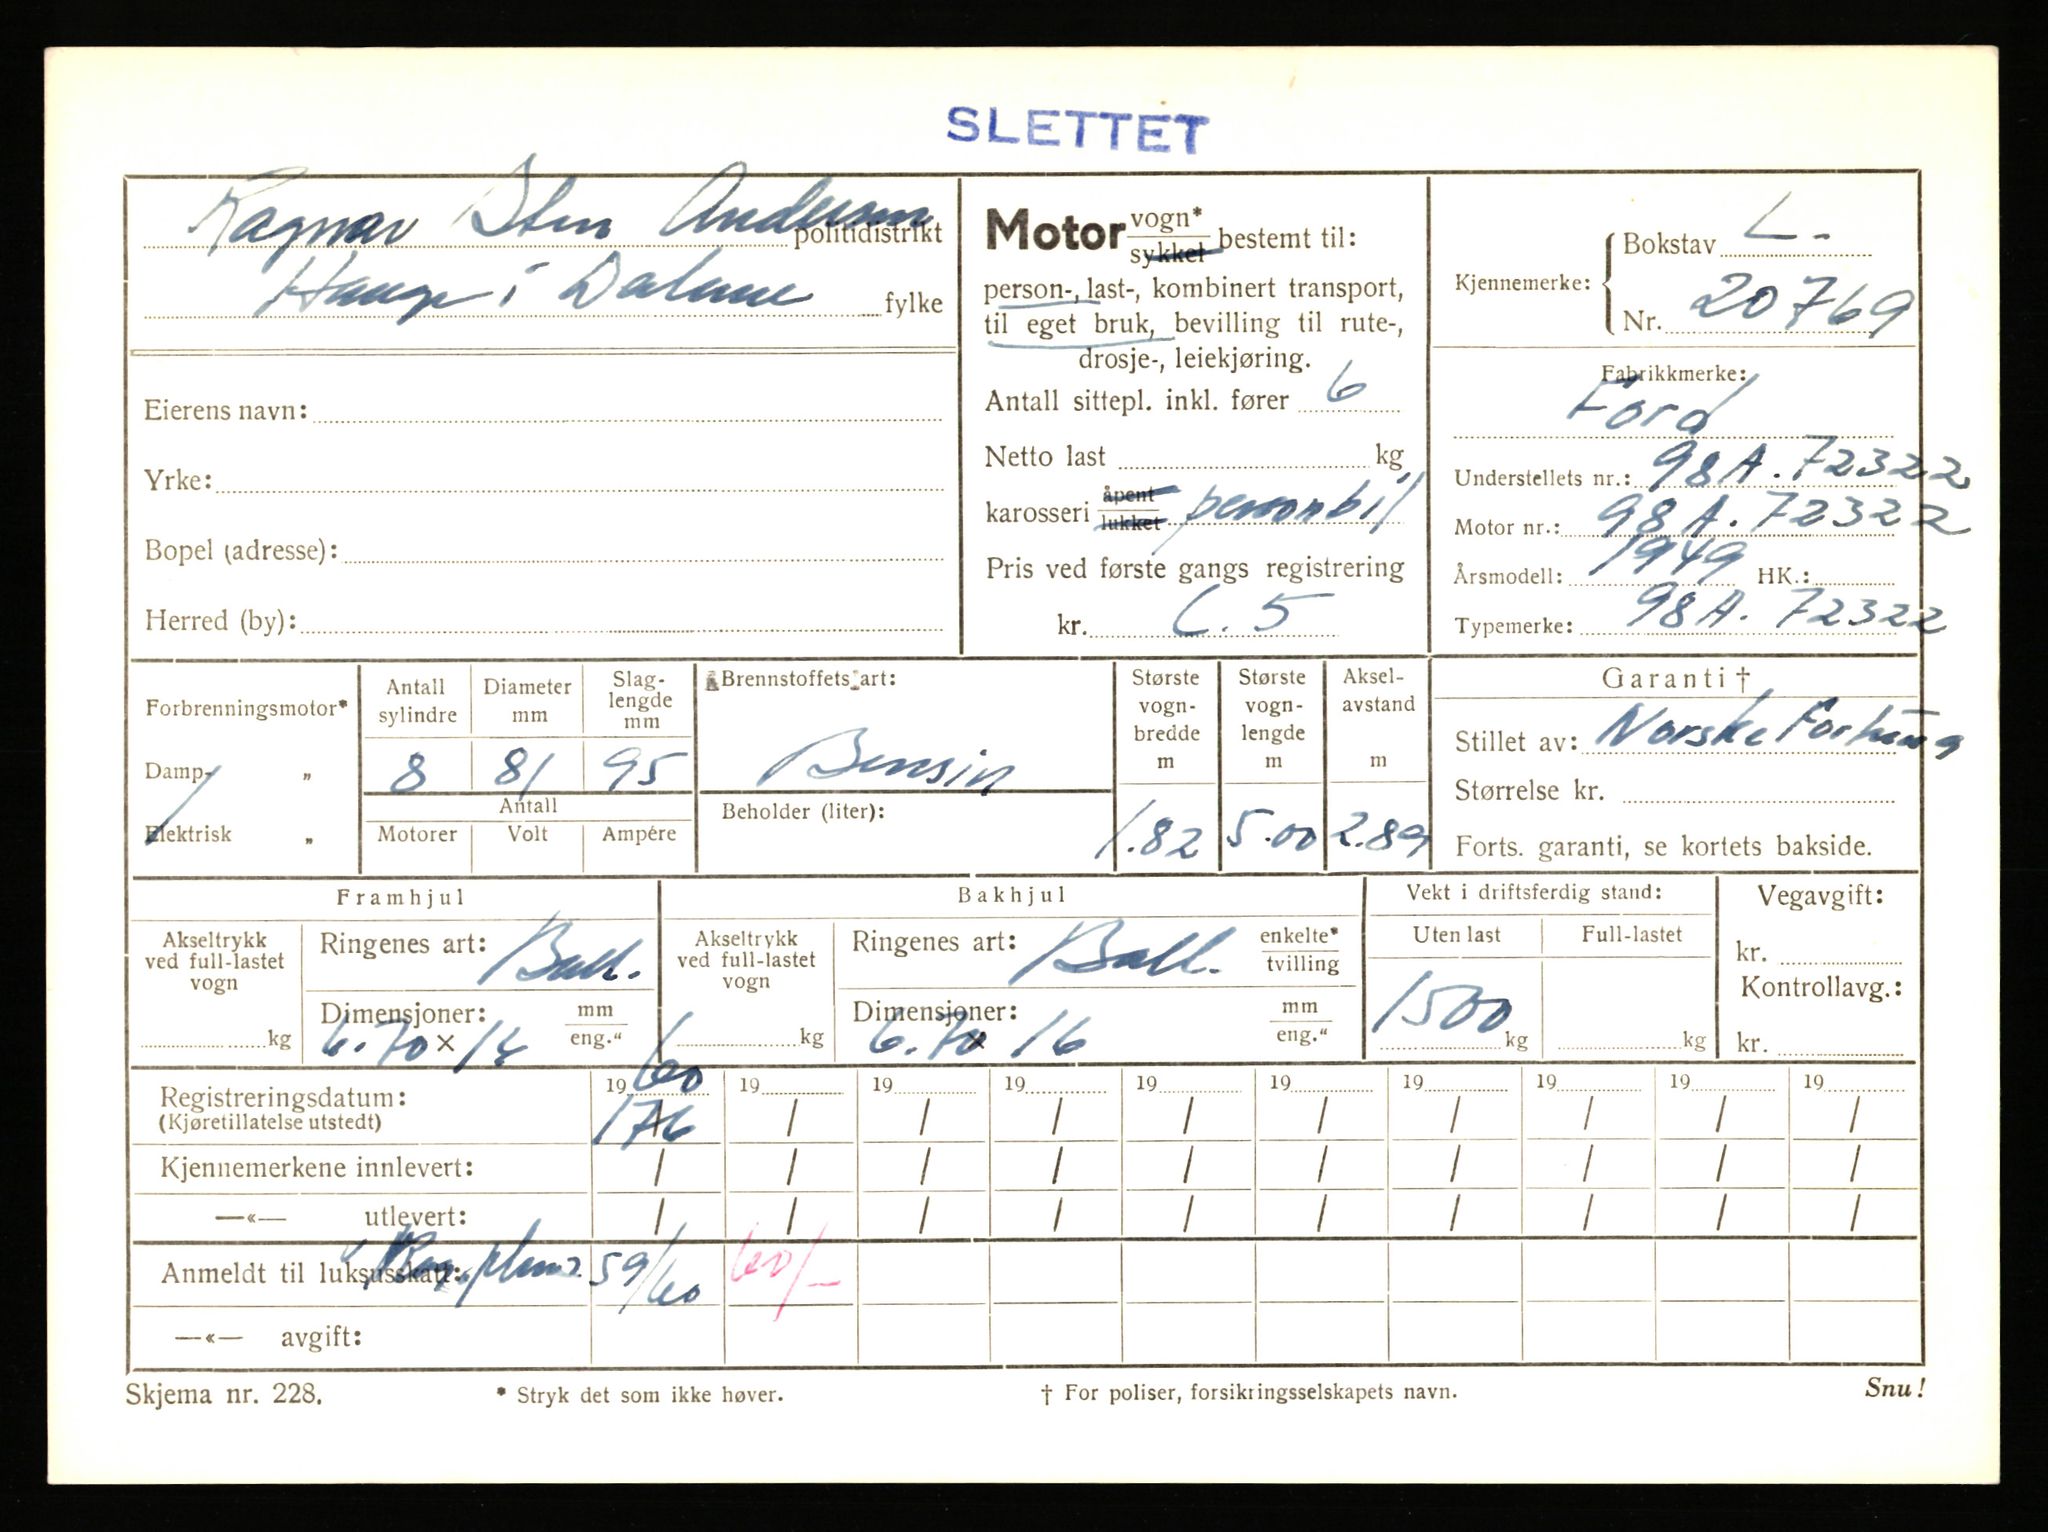 SLETTET
Ragnar Sten Andersen politidistrikt
Hauge i Dalane fylke
Eierens navn:
Yrke:
Bopel (adresse):
Herred (by):
Motor vogn* sykkel bestemt til:
person-, last-, kombinert transport,
til eget bruk, bevilling til rute-,
drosje-, leiekjøring.
Antall sittepl. inkl. fører 6
Netto last kg
karosseri åpent lukket personbil
Pris ved første gangs registrering
kr. C. 5
Kjennemerke: Bokstav L-
Nr. 20769
Fabrikkmerke:
Ford
Understellets nr.: 98A.72322
Motor nr.: 98A.72322
Årsmodell: 1949 HK.:
Typemerke: 98A.72322
Forbrenningsmotor*
Damp- „
Elektrisk „
Antall sylindre
Diameter mm
Slaglengde mm
8 81 95
Antall
Motorer Volt Ampére
Brennstoffets art:
Bensin
Beholder (liter):
Største vognbredde m
1.82
Største vognlengde m
5.00
Akselavstand m
2.89
Garanti †
Stillet av: Norske
Størrelse kr.
Forts. garanti, se kortets bakside.
Framhjul
Akseltrykk ved full-lastet vogn
kg
Ringenes art: Ball.
Dimensjoner: mm eng."
6.70 x 16
Bakhjul
Akseltrykk ved full-lastet vogn
kg
Ringenes art: Ball. enkelte* tvilling
Dimensjoner: mm eng."
6.70 x 16
Vekt i driftsferdig stand:
Uten last Full-lastet
1500 kg kg
Vegavgift:
kr.
Kontrollavg.:
kr.
Registreringsdatum: 1960 19 19 19 19 19 19 19 19 19
(Kjøretillatelse utstedt) 17/6 / / / / / / / / /
Kjennemerkene innlevert: / / / / / / / / / /
—«— utlevert: / / / / / / / / / /
Anmeldt til luksusskatt: 59/60 60/-
—«— avgift:
Skjema nr. 228. * Stryk det som ikke høver. † For poliser, forsikringsselskapets navn. Snu!